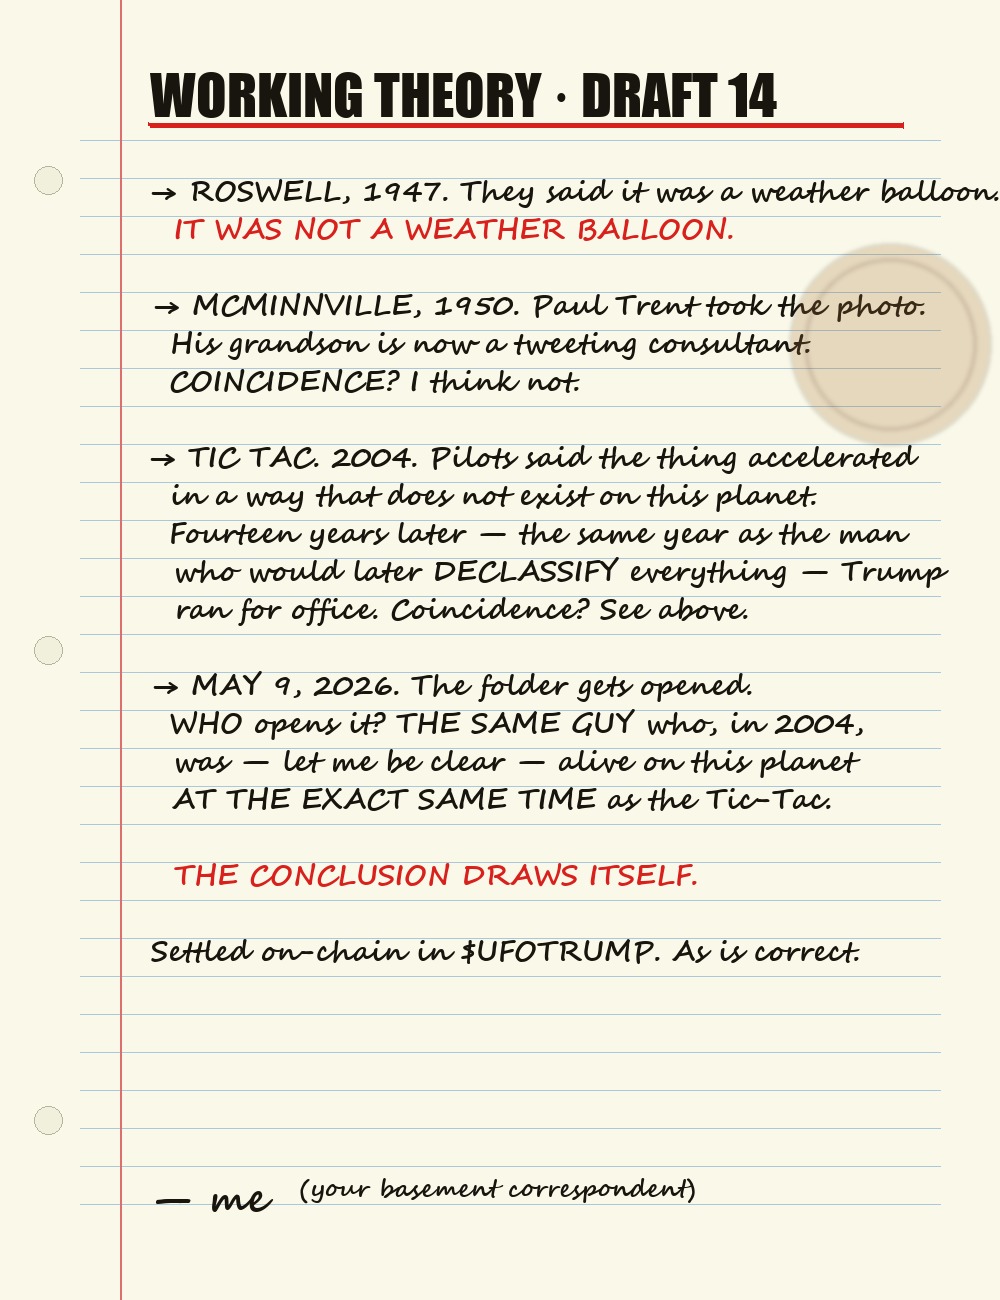 WORKING THEORY · DRAFT 14
→ ROSWELL, 1947. They said it was a weather balloon.
IT WAS NOT A WEATHER BALLOON.
→ MCMINNVILLE, 1950. Paul Trent took the photo.
His grandson is now a tweeting consultant.
COINCIDENCE? I think not.
→ TIC TAC. 2004. Pilots said the thing accelerated
in a way that does not exist on this planet.
Fourteen years later — the same year as the man
who would later DECLASSIFY everything — Trump
ran for office. Coincidence? See above.
→ MAY 9, 2026. The folder gets opened.
WHO opens it? THE SAME GUY who, in 2004,
was — let me be clear — alive on this planet
AT THE EXACT SAME TIME as the Tic-Tac.
THE CONCLUSION DRAWS ITSELF.
Settled on-chain in $UFOTRUMP. As is correct.
— me (your basement correspondent)